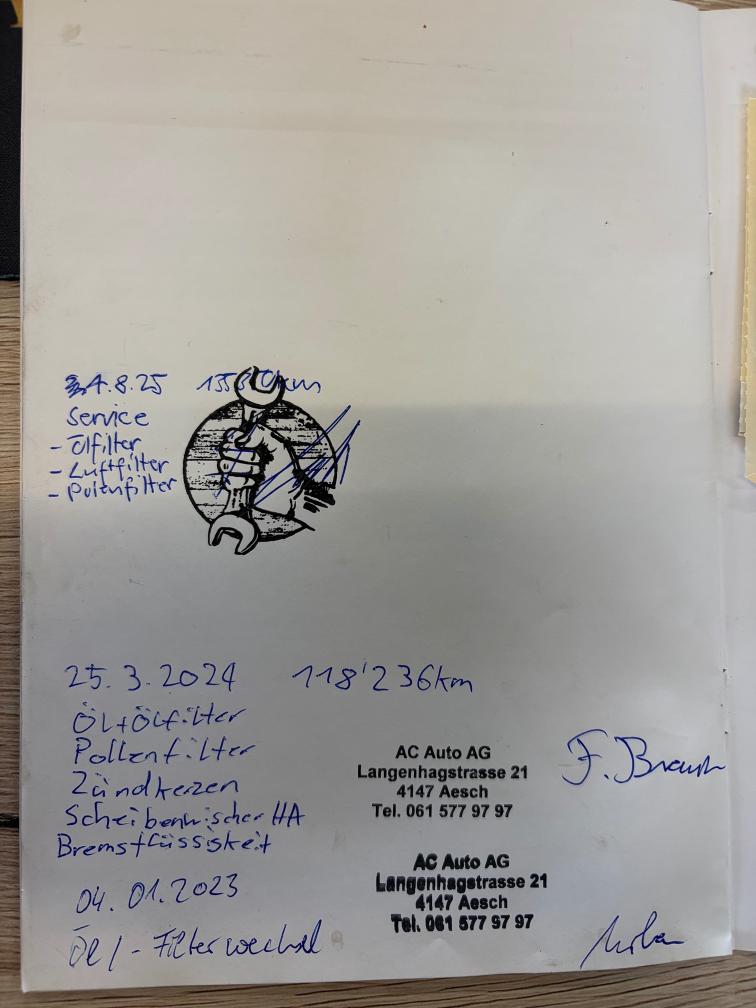 4.8.25
Service
- Ölfilter
- Luftfilter
- Polenfilter
25.3.2024 118'236km
Öl+Ölfilter
Pollenfilter
Zündkerzen
Scheibenwischer HA
Bremsflüssigkeit
AC Auto AG
Langenhagstrasse 21
4147 Aesch
Tel. 061 577 97 97
04.01.2023
Öl/-Filterwechsel
AC Auto AG
Langenhagstrasse 21
4147 Aesch
Tel. 061 577 97 97